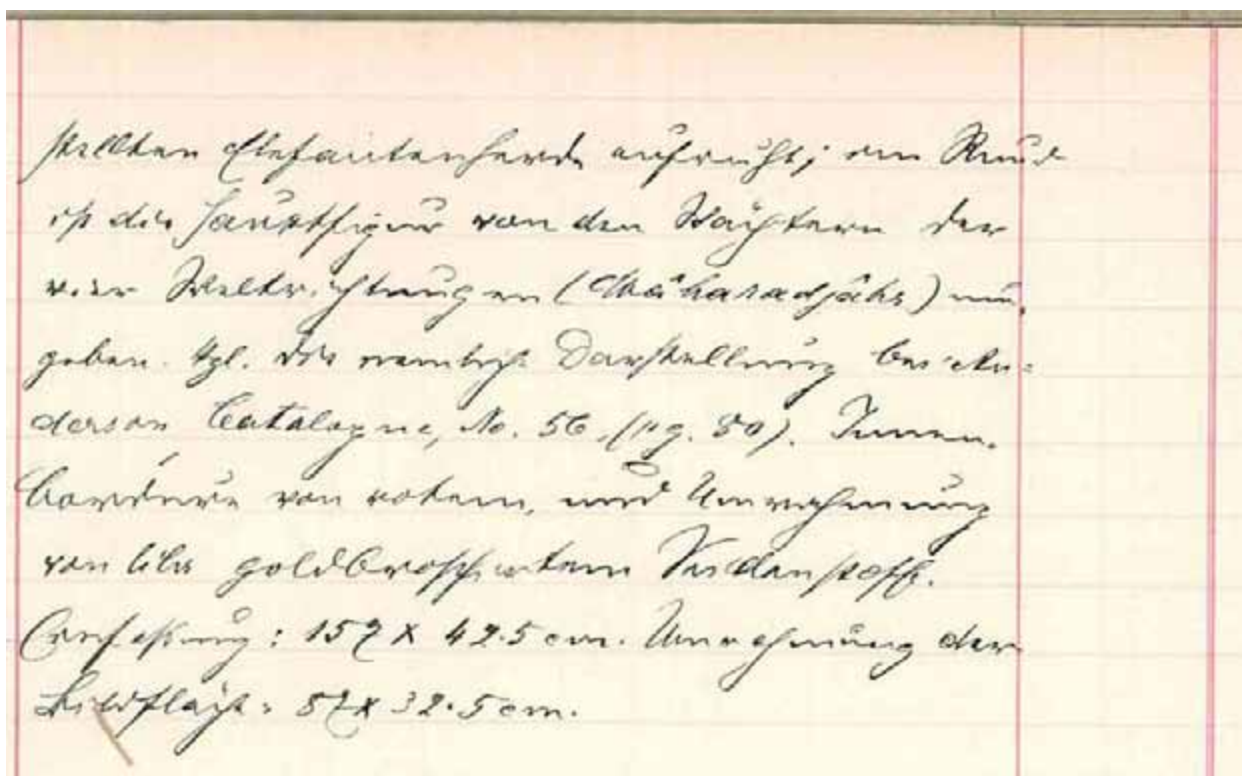 stellten Elefantenherde aufruht; am Rund
ist die Hauptfigur von den Wächtern der
vier Weltrichtungen (Mâhâradjâhs) um-
geben. Vgl. die ähnliche Darstellung bei An-
derson Catalogue, No. 56, (pg. 80). Innen-
bordüre von rotem, und Umrahmung
von lila goldbroschiertem Seidenstoff.
Einfassung: 157 X 42.5 cm. Umrahmung der
Bildfläche: 87 X 32.5 cm.